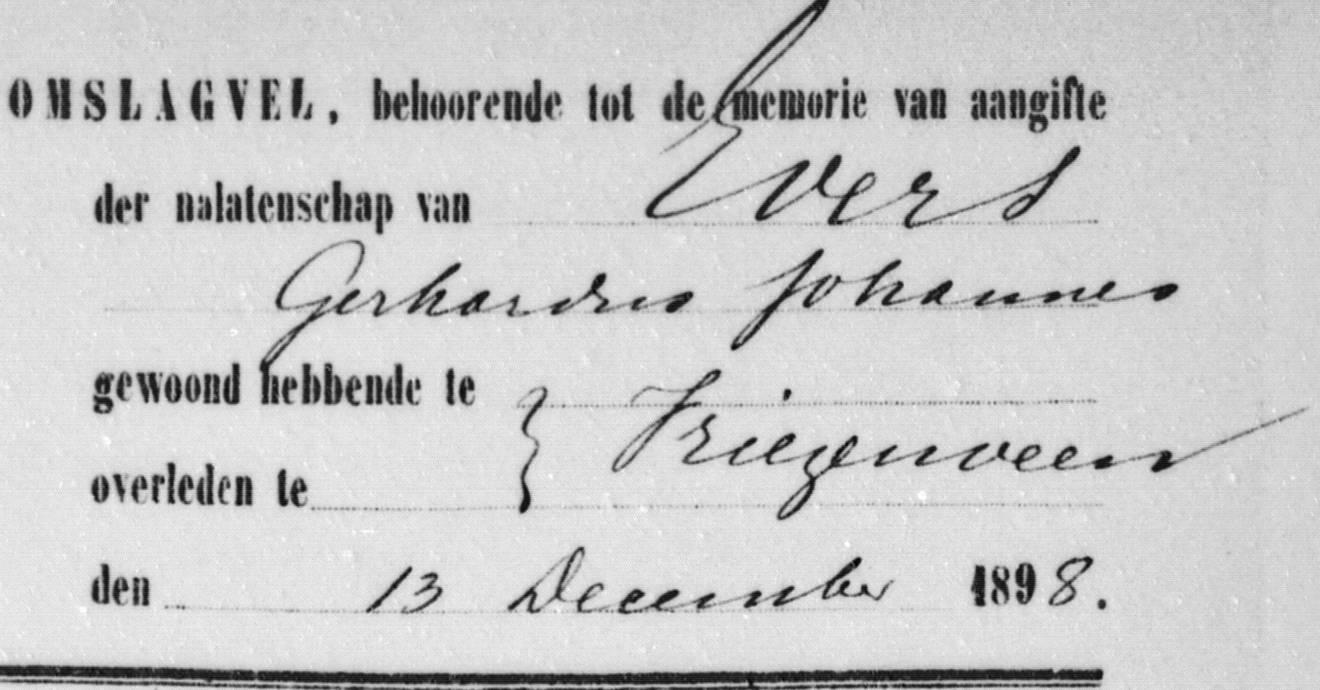 OMSLAGVEL, behoorende tot de memorie van aangifte
der nalatenschap van Evers
Gerhardus Johannes
gewoond hebbende te
} Vriezenveen
overleden te
den 13 December 1898.